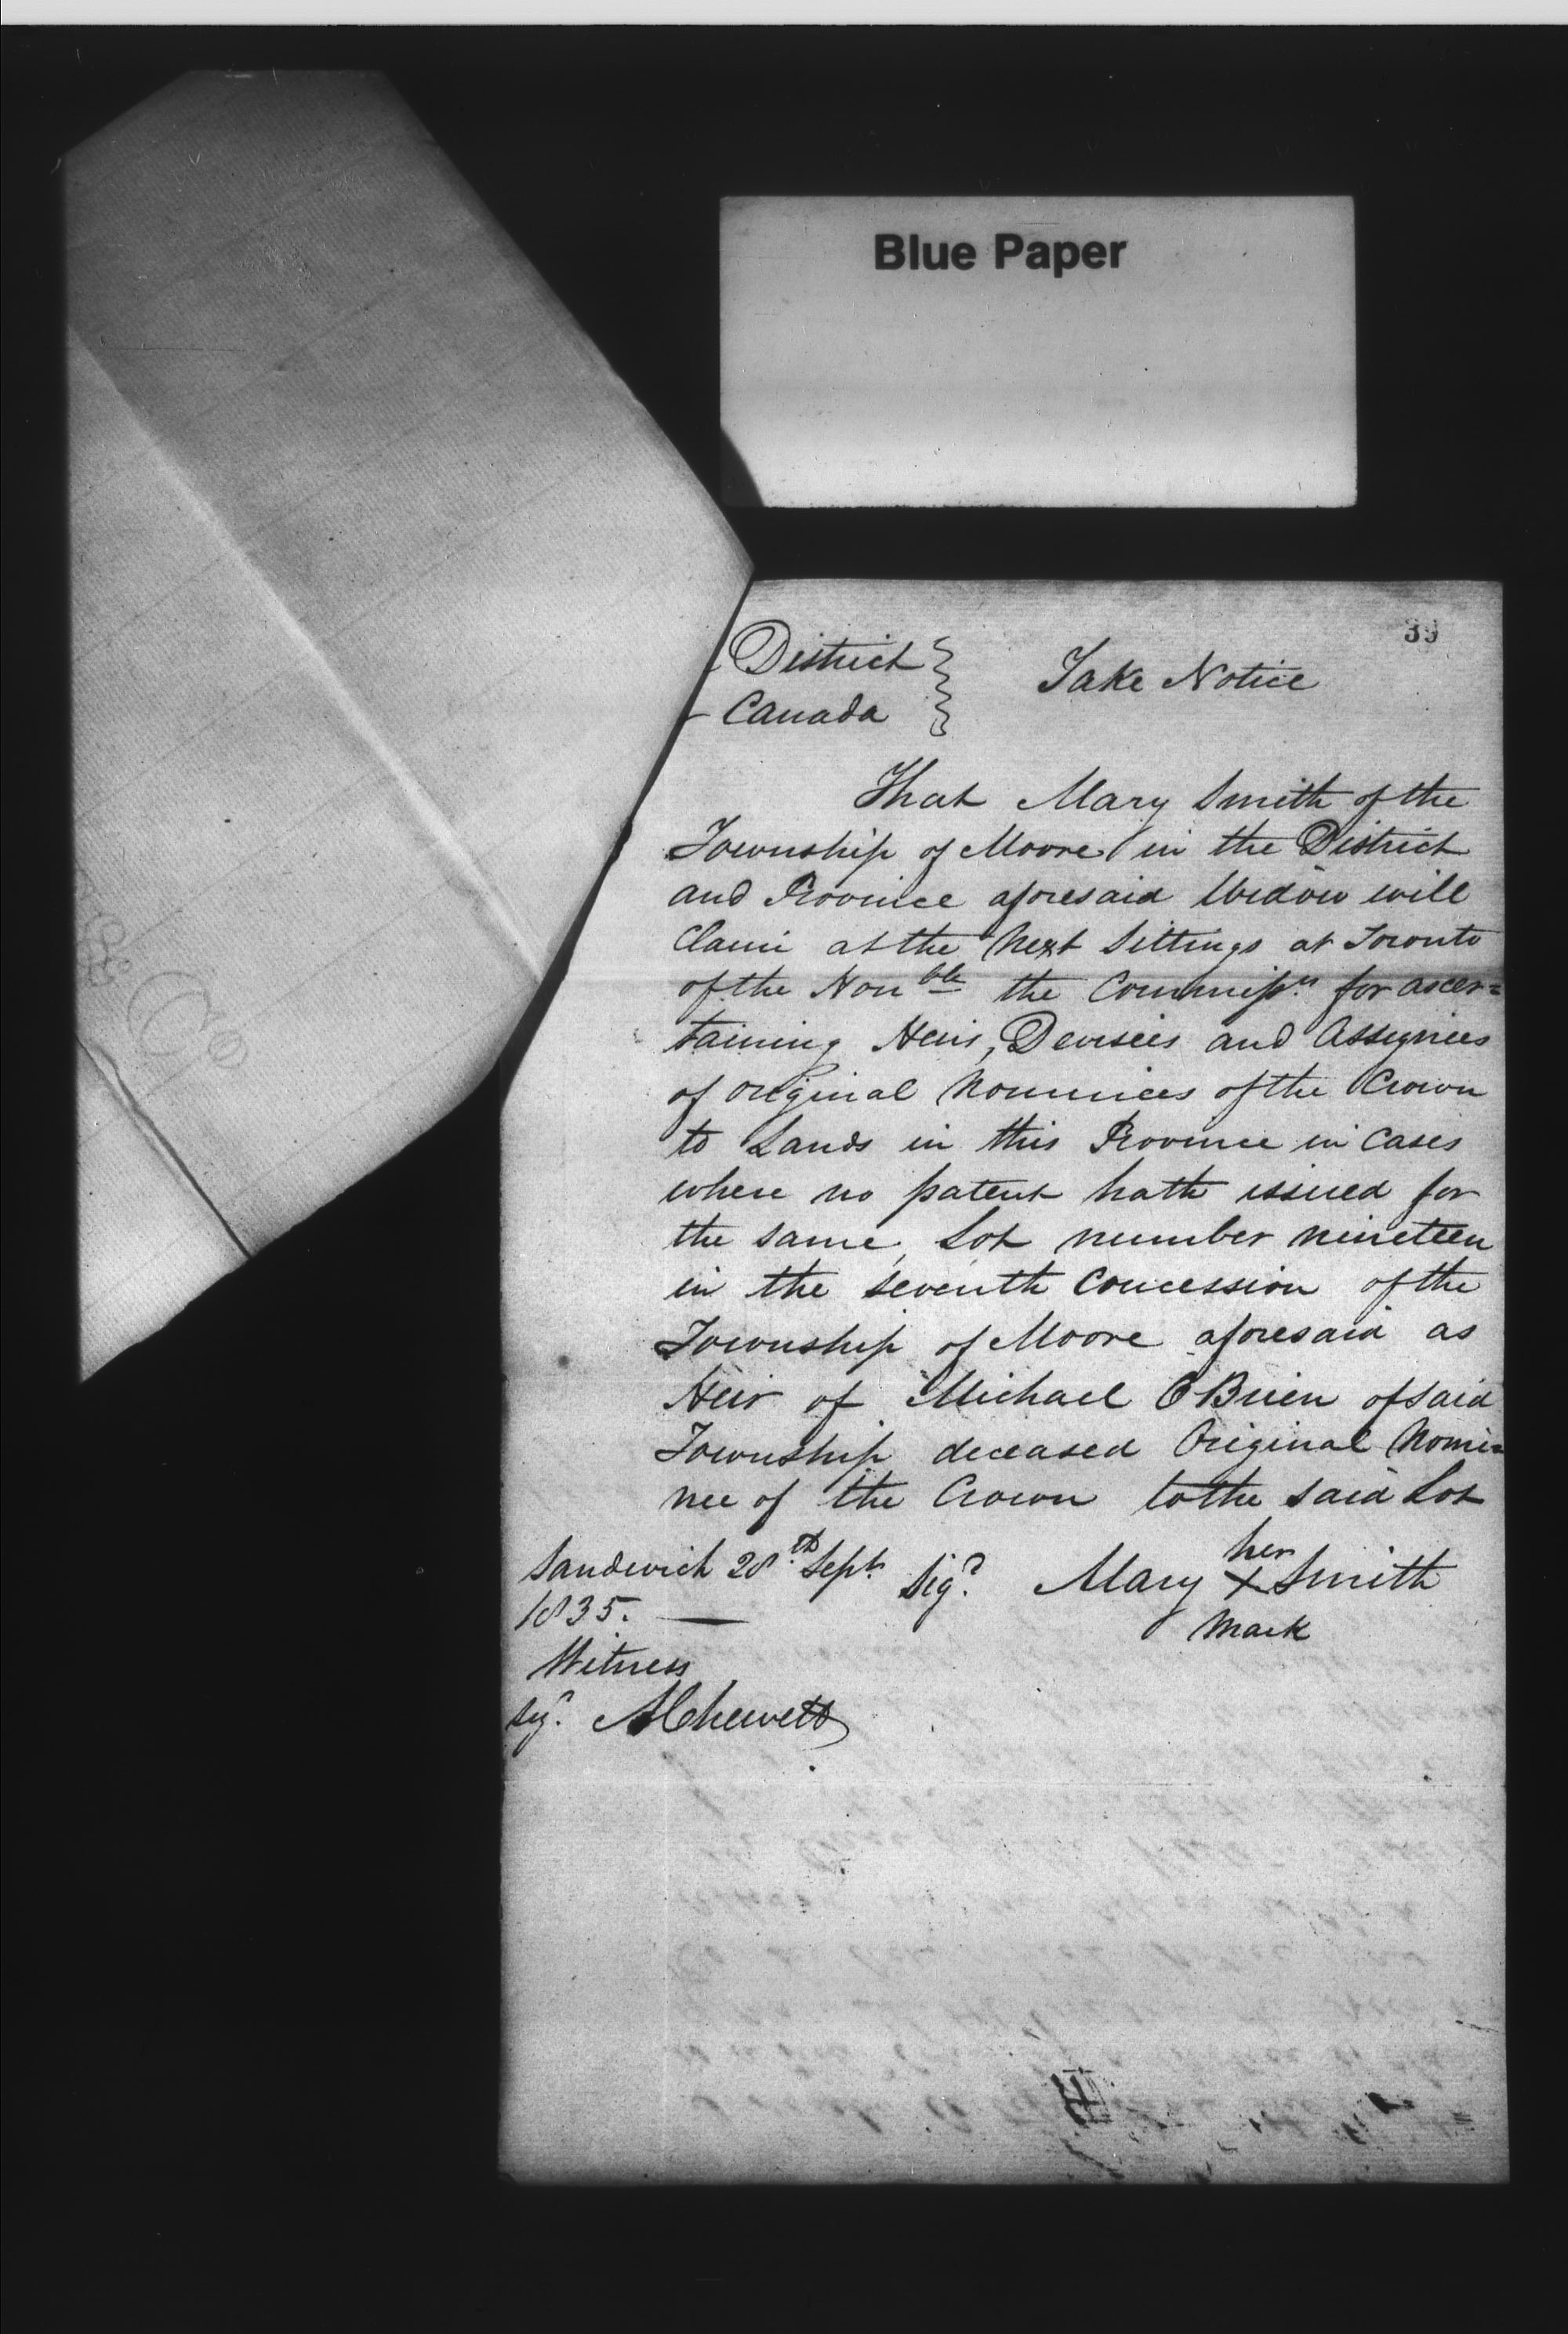 Blue Paper
39
District
Canada
Take Notice
That Mary Smith of the
Township of Moore in the District
and Province aforesaid Widow will
claim at the Next Sittings at Toronto
of the Hon ble the Commissrs for ascer=
taining Heirs, Devisees and Assignees
of original Nominees of the Crown
to Lands in this Province in Cases
where no patent hath issued for
the same, Lot number nineteen
in the seventh Concession of the
Township of Moore aforesaid as
Heir of Michael O Brien of said
Township deceased Original Nomi=
nee of the Crown to the said Lot
Sandwich 28th Sept. Sigd. Mary her X Smith
1835. — mark
Witness
sigd. A Chewett